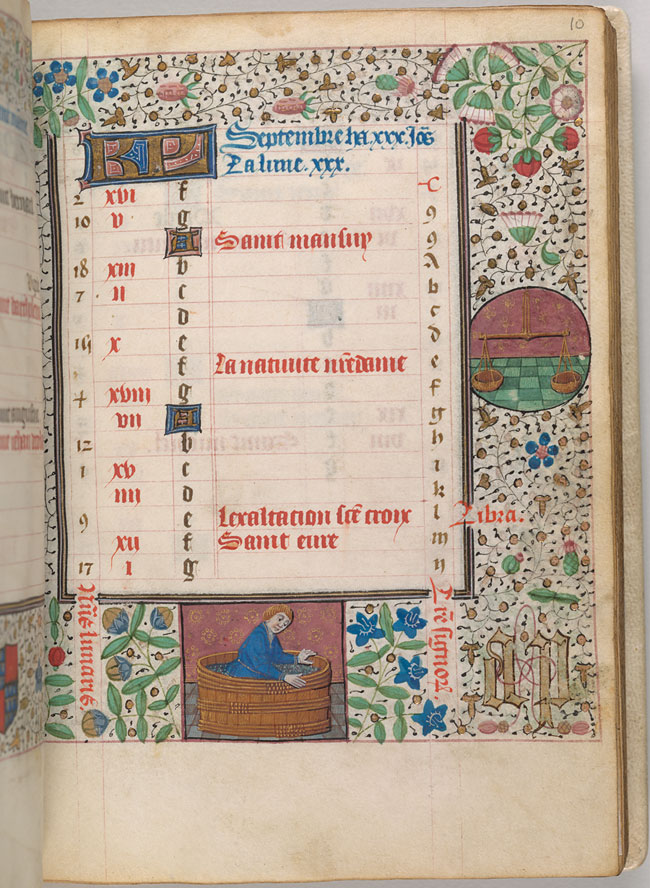 10
KL Septembre ha xxx. Jo's
La lune. xxx.
2 xvi f C
10 v g 9
A Saint mansuy 9
18 xiii b A
7 ii c b
d c
15 x e d
f La nativite nre dame e
4 xviii g f
vii A g
12 b h
1 xv c i
iiii d k
9 e Lexaltacion sce croix l Libra.
xii f Saint evre m
17 i g n
lunaris